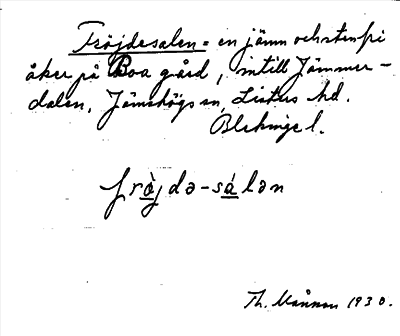 Fröjdesalen = en jämn och stenfri
åker på Boa gård, intill Jämmer-
dalen, Jämshögs sn, Listers hd.
Blekinge l.
frò̱jdə-sá̱lən
Th. Månsson 1930.